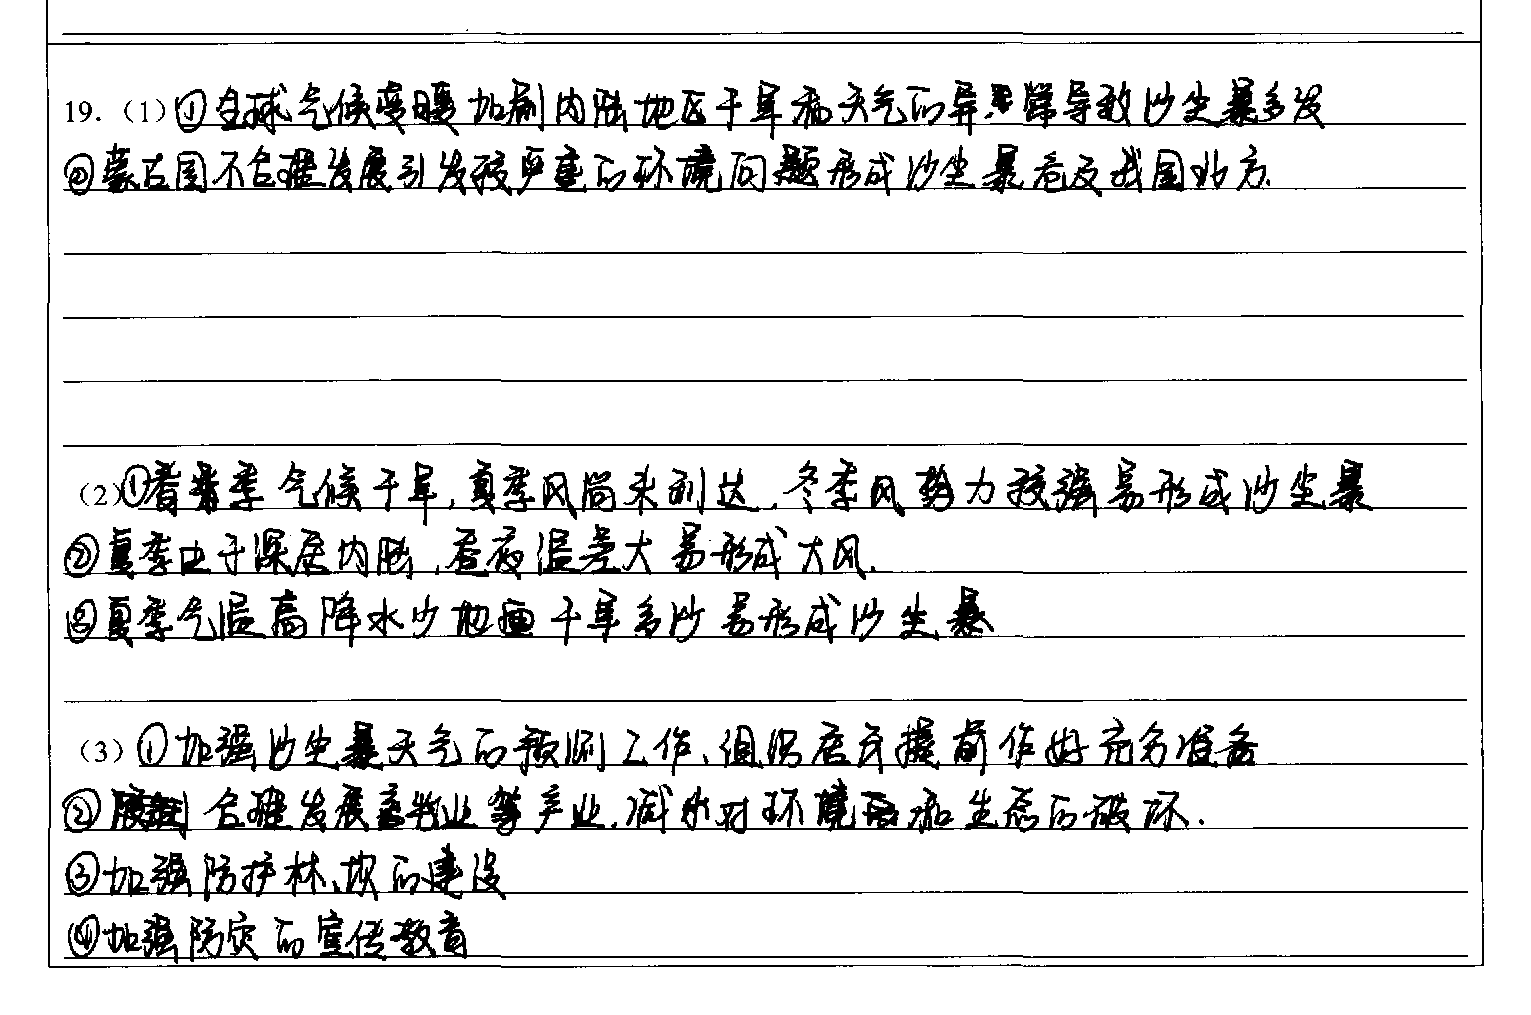 19.（1）①全球气候变暖加剧内陆地区干旱和天气的异常导致沙尘暴多发
②蒙古国不合理发展引发较严重的环境问题形成沙尘暴危及我国北方.
（2）①春季气候干旱,夏季风尚未到达,冬季风势力较强易形成沙尘暴
②夏季由于深居内陆,昼夜温差大易形成大风.
③夏季气温高降水少地面干旱多沙易形成沙尘暴
（3）①加强沙尘暴天气的预测工作、组织居民提前作好充分准备
②合理发展畜牧业等产业.减少对环境和生态的破坏.
③加强防护林、坝的建设
④加强防灾的宣传教育